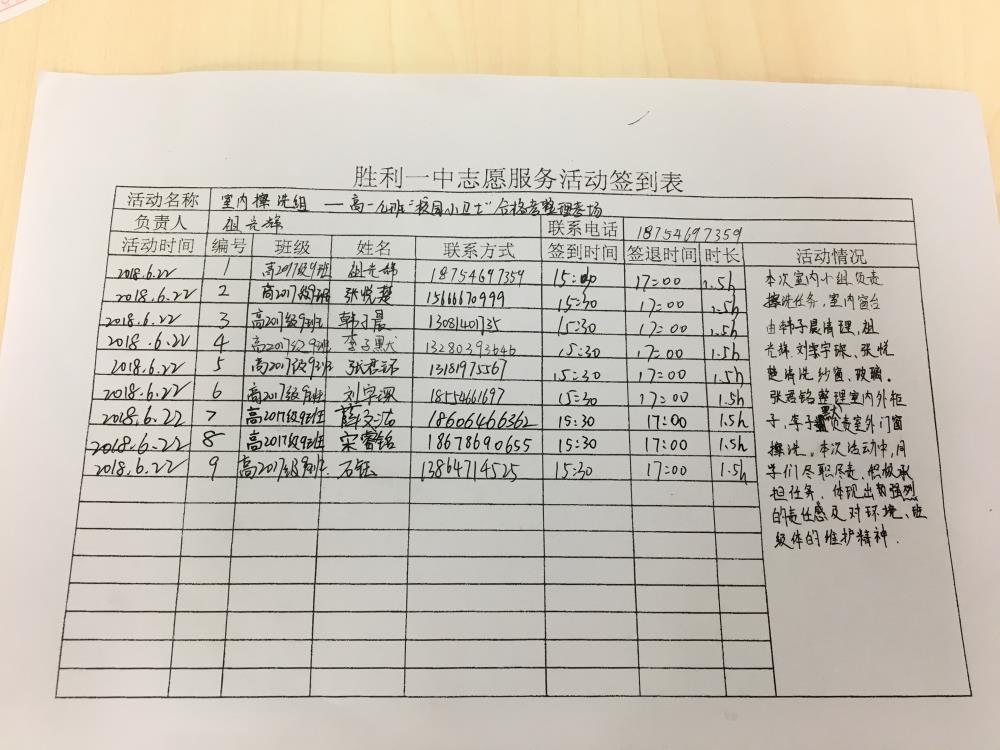 胜利一中志愿服务活动签到表
活动名称 室内擦洗组 —高一九班“校园小卫士”合格考整理考场
负责人 祖光辉 联系电话 18754697359
活动时间 编号 班级 姓名 联系方式 签到时间 签退时间 时长 活动情况
2018.6.22 1 高2017级9班 祖光辉 18754697359 15:30 17:00 1.5h
2018.6.22 2 高2017级9班 张悦楚 15666670999 15:30 17:00 1.5h
2018.6.22 3 高2017级9班 韩子晨 13081401735 15:30 17:00 1.5h
2018.6.22 4 高2017级9班 李子默 13280393646 15:30 17:00 1.5h
2018.6.22 5 高2017级9班 张君 13181975567 15:30 17:00 1.5h
2018.6.22 6 高2017级9班 刘宇琛 18754661697 15:30 17:00 1.5h
2018.6.22 7 高2017级9班 薛 18606466362 15:30 17:00 1.5h
2018.6.22 8 高2017级9班 宋睿铭 18678690655 15:30 17:00 1.5h
2018.6.22 9 高2017级9班 石钰 13864714525 15:30 17:00 1.5h
本次室内小组负责
擦洗任务,室内窗台
由韩子晨清理,祖
光辉、刘宇琛、张悦
楚清洗纱窗、玻璃。
张君铭整理室内外柜
子,李子默负责室外门窗
擦洗。本次活动中,同
学们尽职尽责、积极承
担任务,体现出强烈
的责任感及对环境、班
级体的维护精神.